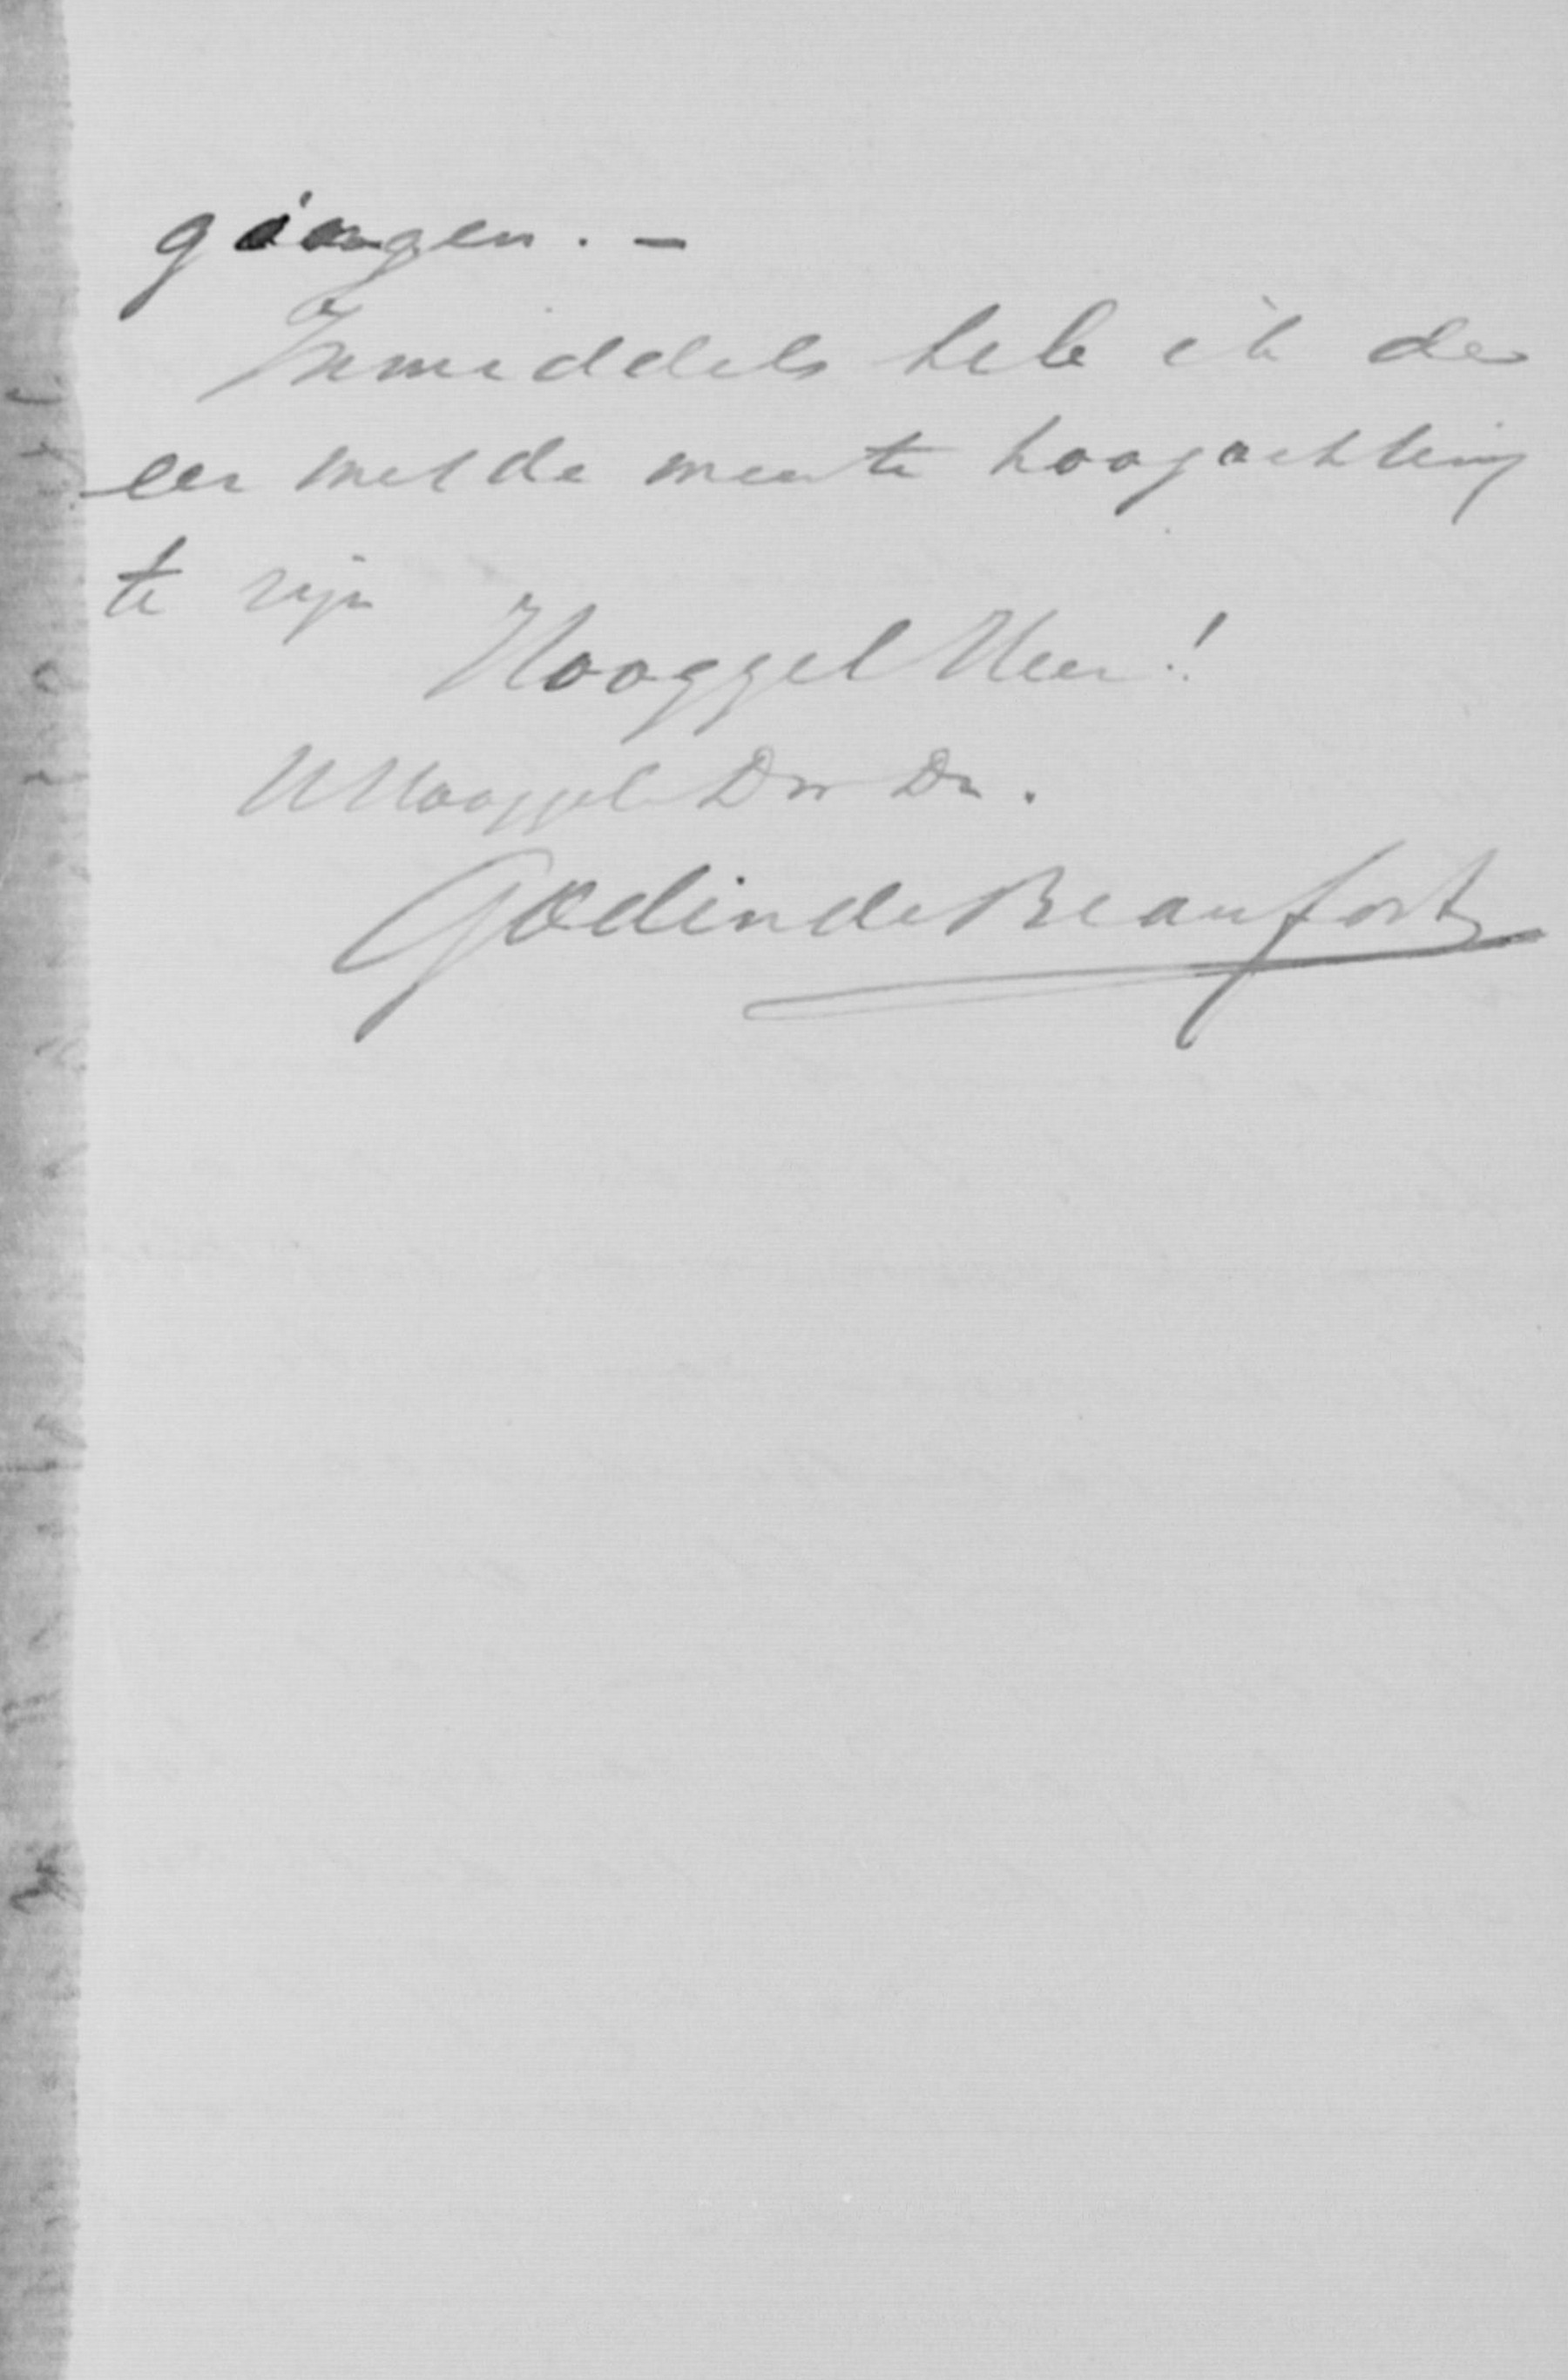 gingen. -
Inmiddels heb ik de
eer met de meeste hoogachting
te zijn
Hooggel Heer!
UHooggel Dw Dr.
Godin de Beaufort